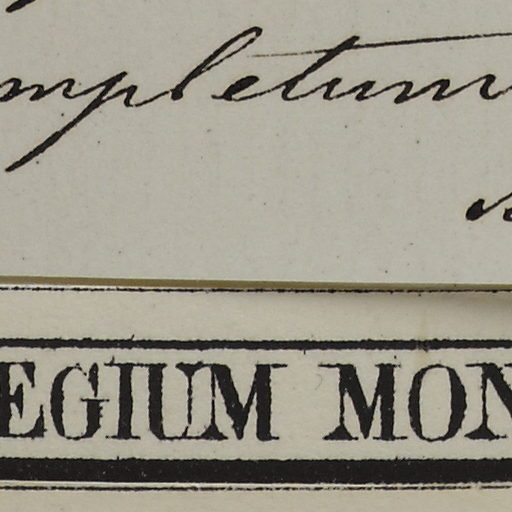 mpletum
EGIUM MON